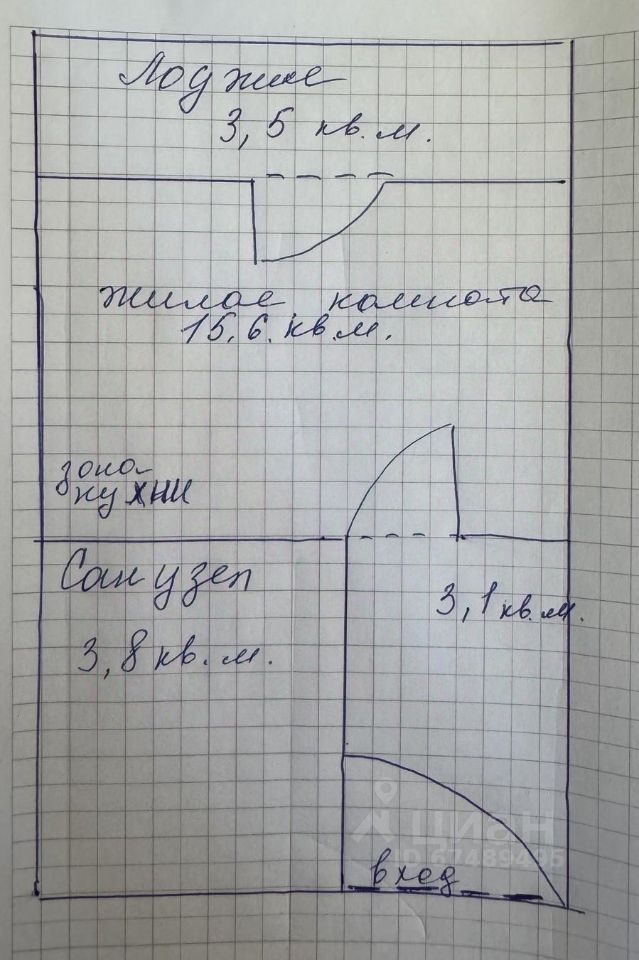 Лоджие
3,5 кв.м.
жилое комната
15,6 кв.м.
зона
кухни
Санузел
3,1 кв.м.
3,8 кв.м.
циан
ID 67489405
вход